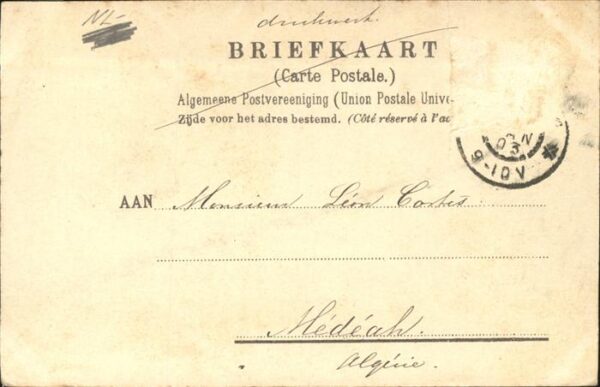 NL-
drukwerk.
BRIEFKAART
(Carte Postale.)
Algemeene Postvereeniging (Union Postale Unive
Zijde voor het adres bestemd. (Côté réservé à l'ad
03
9-10V
AAN Monsieur Léon Cortès
Médéah.
Algérie.